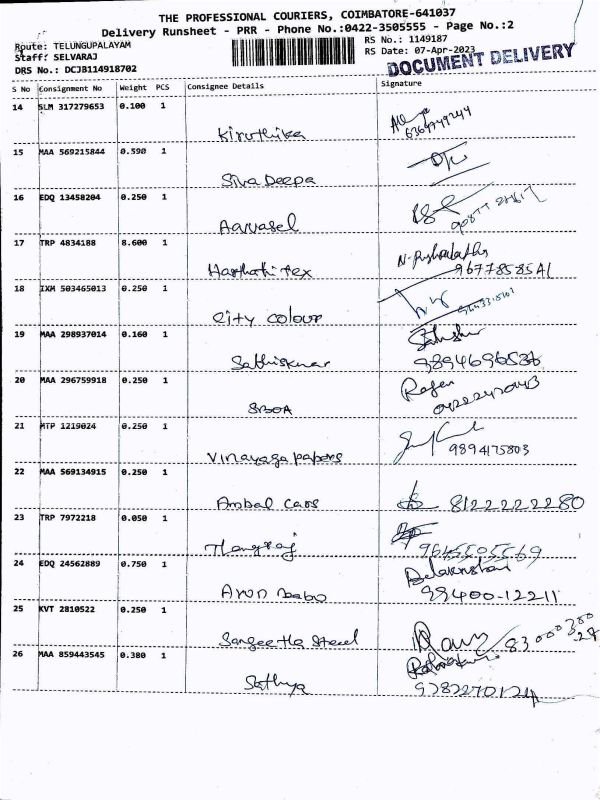 THE PROFESSIONAL COURIERS, COIMBATORE-641037
Delivery Runsheet - PRR - Phone No.:0422-3505555 - Page No.:2
Route: TELUNGUPALAYAM
RS No.: 1149187
Staff: SELVARAJ
RS Date: 07-Apr-2023
DRS No.: DCJB114918702
DOCUMENT DELIVERY
S No Consignment No Weight PCS Consignee Details Signature
14 SLM 317279653 0.100 1
Kiruthika
15 MAA 569215844 0.590 1
Siva Deepa
16 EDQ 13458204 0.250 1
Aarvasel
17 TRP 4834188 8.600 1
Harthaki tex 9677858541
18 IXM 503465013 0.250 1
City colour
19 MAA 298937014 0.160 1
Sathiskumar 9894696586
20 MAA 296759918 0.250 1
SBOA
21 MTP 1219024 0.250 1
Vinayaga papers 9894175803
22 MAA 569134915 0.250 1
Ambal Cars 8122222280
23 TRP 7972218 0.050 1
Thangraj
24 EDQ 24562889 0.750 1
Arun babu 99400-12211
25 KVT 2810522 0.250 1
Sangeetha Steel
26 MAA 859443545 0.380 1
Sathya